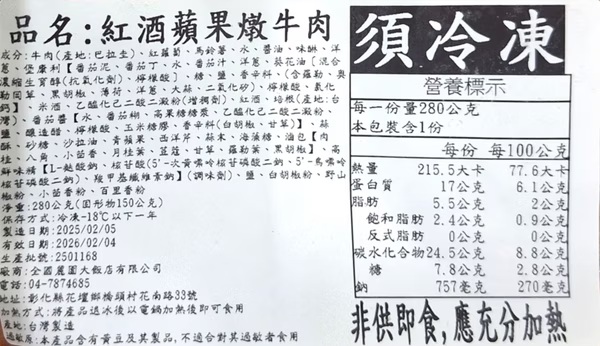 品名:紅酒蘋果燉牛肉
成分:牛肉(產地:巴拉圭)、紅蘿蔔、馬鈴薯、水、醬油、味醂、洋
蔥、堡康利【番茄泥、番茄丁、水、番茄汁、洋蔥、葵花油[混合
濃縮生育醇(抗氧化劑)、檸檬酸]、糖、鹽、香辛料、(含羅勒、奧
勒岡草、黑胡椒、薄荷、洋蔥、大蒜、二氧化矽)、檸檬酸、氯化
鈣】、米酒、乙醯化己二酸二澱粉(增稠劑)、紅酒、培根(產地:台
灣)、番茄醬【水、番茄糊、高果糖糖漿、乙醯化己二酸二澱粉、
鹽、釀造醋、檸檬酸、玉米糖膠、香辛料(白胡椒、甘草)】、蒜
酥、砂糖、沙拉油、青蘋果、西洋芹、蒜末、海藻糖、滷包【肉
桂、八角、小茴香、月桂葉、荳蔻、甘草、羅勒葉、黑胡椒】、高
鮮味精【L-麩酸鈉、5'-次黃嘌呤核苷磷酸二鈉、5'-鳥嘌呤
核苷磷酸二鈉)、羧甲基纖維素鈣】(調味劑)、鹽、白胡椒粉、野山
椒粉、小茴香粉、百里香粉
淨重:280公克(固形物150公克)
保存方式:冷凍-18℃以下一年
製造日期:2025/02/05
有效日期:2026/02/04
生產批號:2501168
廠商:全國麗園大飯店有限公司
電話:04-7874685
地址:彰化縣花壇鄉橋頭村花南路33號
加熱方式:將產品退冰後以電鍋加熱後即可食用
產地:台灣製造
過敏原:本產品含有黃豆及其製品,不適合對其過敏者食用
須冷凍
營養標示
每一份量280公克
本包裝含1份
每份 每100公克
熱量 215.5大卡 77.6大卡
蛋白質 17公克 6.1公克
脂肪 5.5公克 2公克
飽和脂肪 2.4公克 0.9公克
反式脂肪 0公克 0公克
碳水化合物24.5公克 8.8公克
糖 7.8公克 2.8公克
鈉 757毫克 270毫克
非供即食,應充分加熱